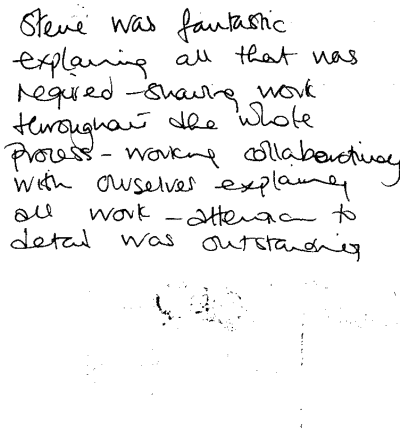 Steve was fantastic
explaining all that was
required - sharing work
throughout the whole
process - working collaboratively
with ourselves explaining
all work - attention to
detail was outstanding